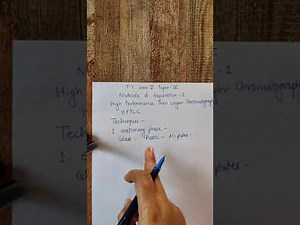 T.Y. Sem-V Paper-IV
Methods of Separation - II
High Performance Thin Layer Chromatograph
HPTLC
Techniques -
1. stationary phase -
Glass - Plastic - Al. plates -